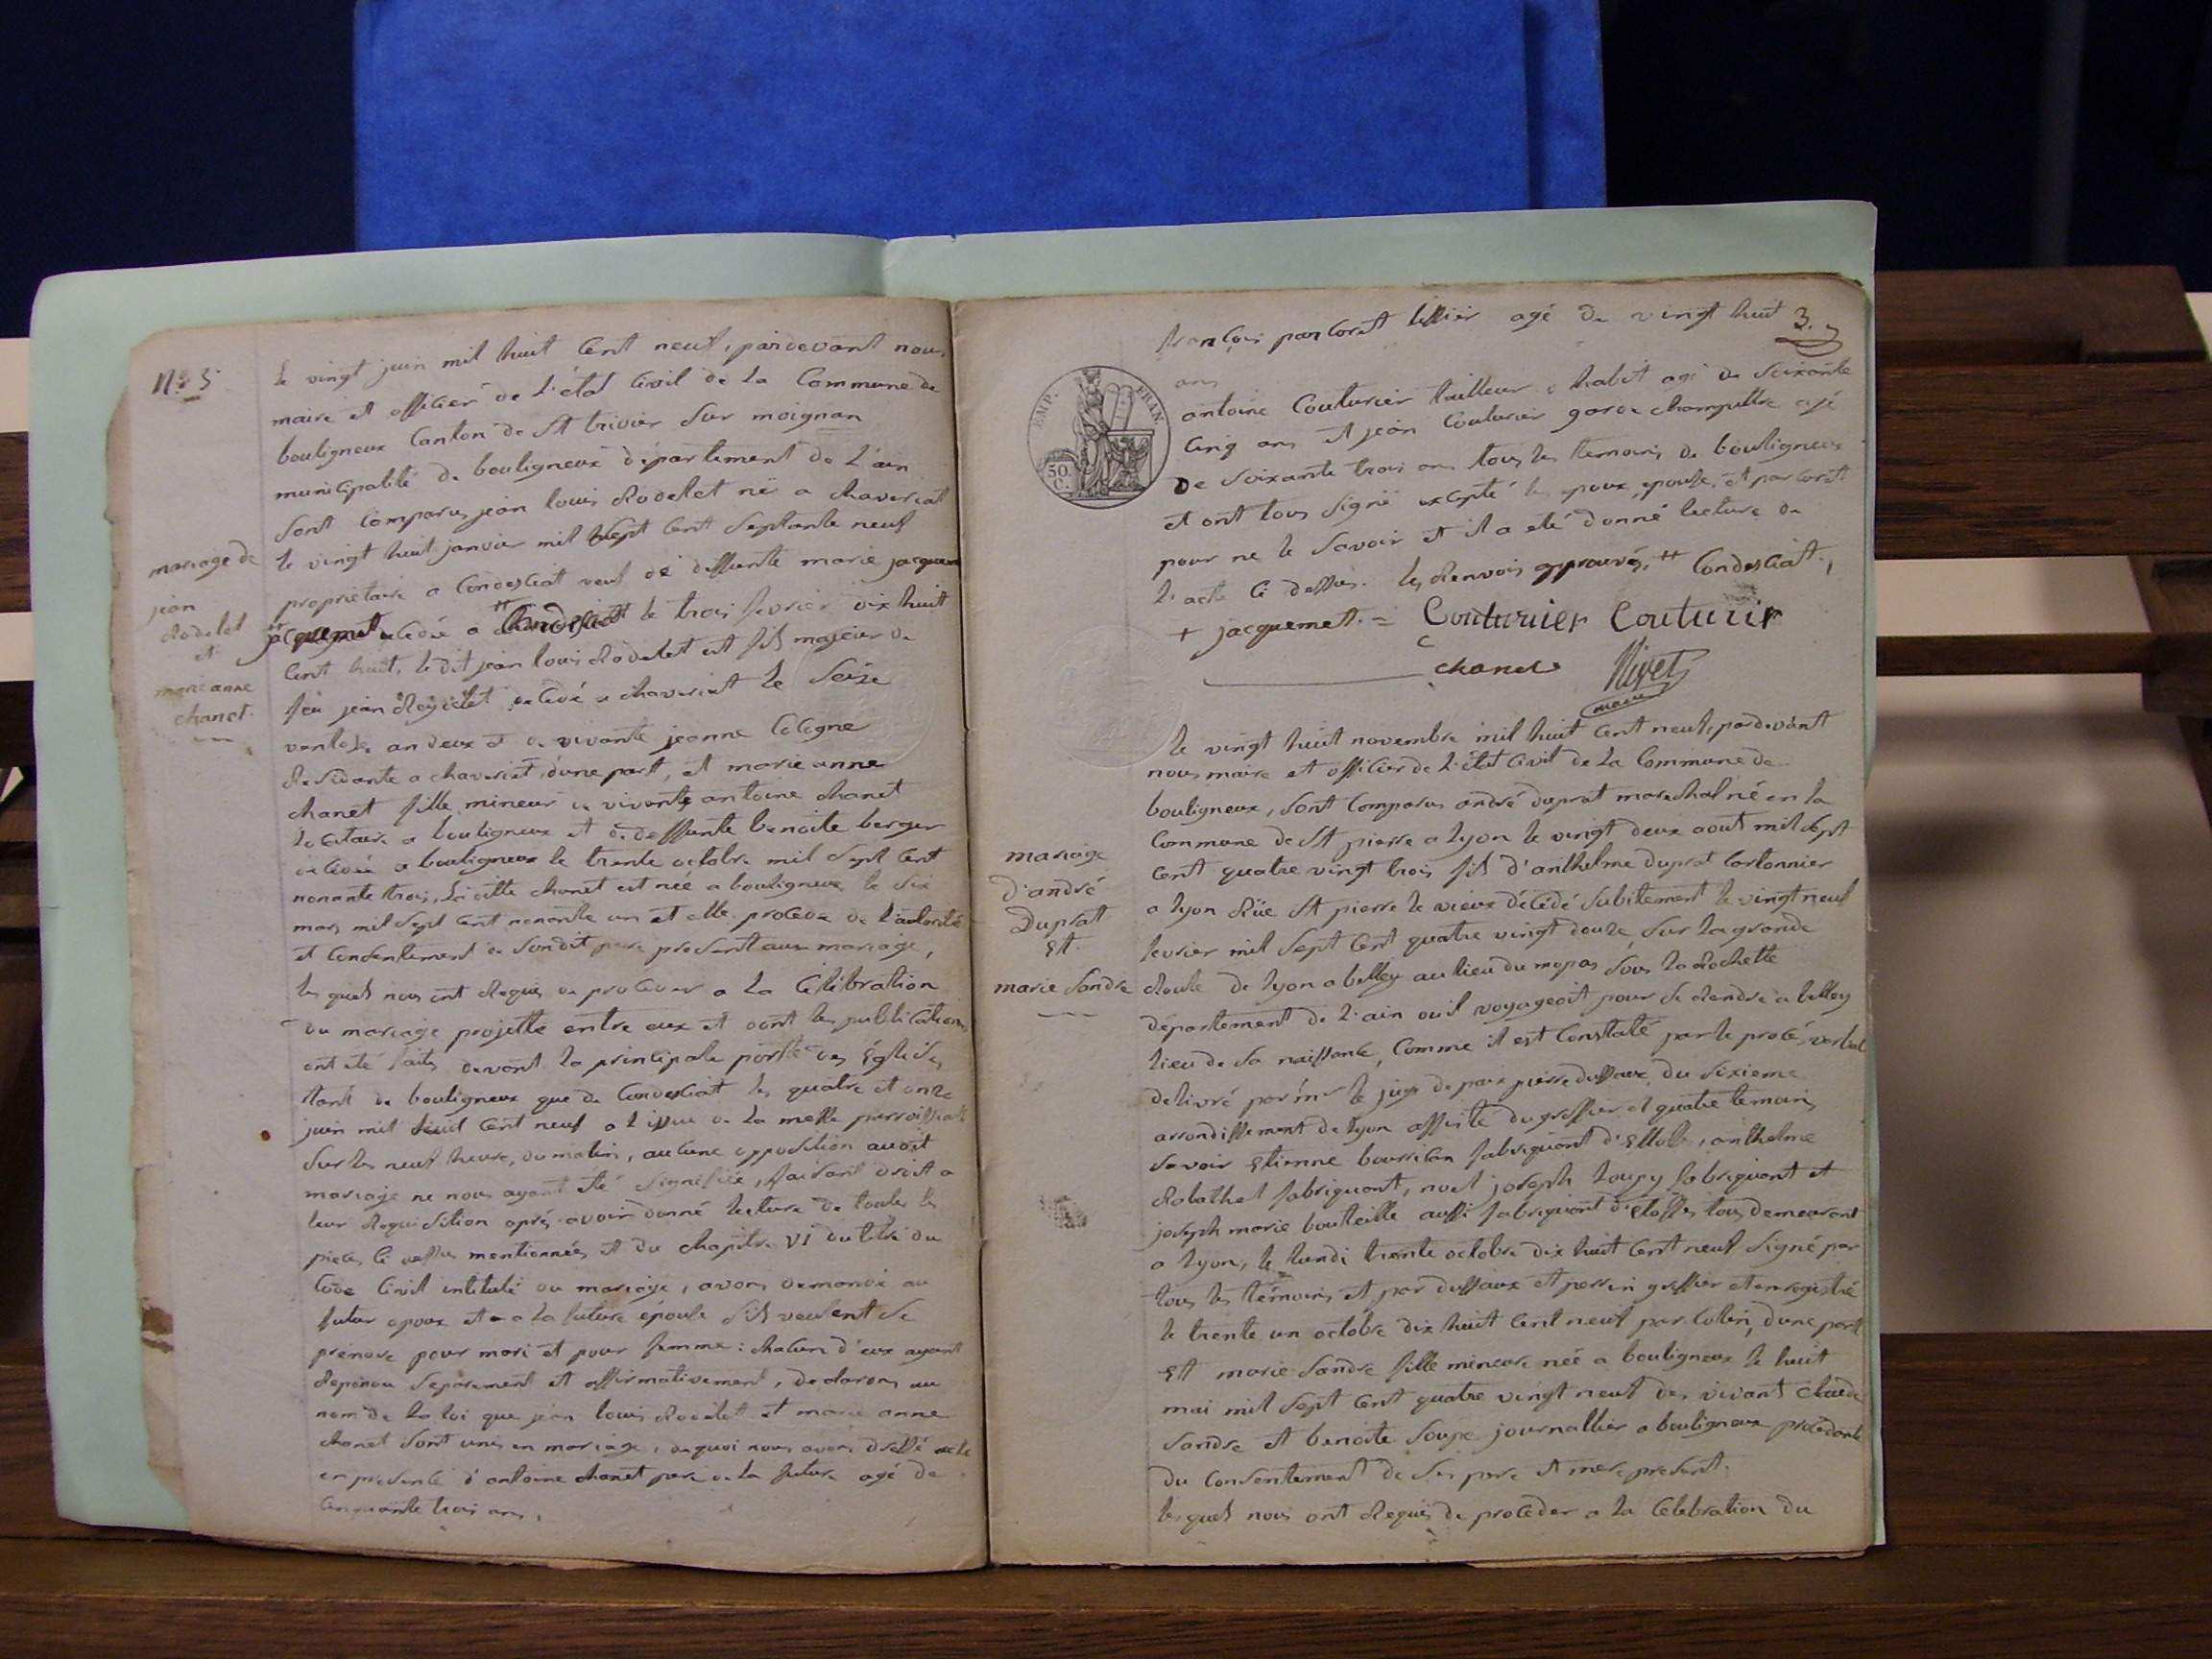 N° 5
le vingt juin mil huit cent neuf, pardevant nous
maire et officier de l'état civil de la commune de
bouligneux canton de St trivier sur moignan
municipalité de bouligneux département de l'ain
sont comparus jean louis Rodelet né a chaveriat
le vingt huit janvier mil sept cent septante neuf
propriétaire a Condessiat veuf de deffunte marie
jacquemet décédée a Condessiat le trois fevrier dix huit
cent huit, le dit jean louis Rodelet est fils majeur de
feu jean Rodelet décédé a chaveriat le seize
ventose an deux et de vivante jeanne Cologne
Residante a chaveriat, d'une part, et marie anne
chanet fille mineur de vivante antoine chanet
locataire a bouligneux et de deffunte benoite berger
décédée a bouligneux le trente octobre mil sept cent
nonante trois, la ditte chanet est née a bouligneux le six
mars mil sept cent nonante un et elle procede de l'autorité
et consentement de sondit pere present au mariage,
les quels nous ont Requis de proceder a la Célébration
du mariage projetté entre eux et dont les publications
ont été faites devant la principale porte des Églises
tant de bouligneux que de Condessiat les quatre et onze
juin mil huit cent neuf a l'issue de la messe parroissiale
sur les neuf heures du matin, aucune opposition audit
mariage ne nous ayant été signifiée, faisant droit a
leur Requisition après avoir donné lecture de toutes les
pieces ci dessus mentionnées et du chapitre VI du titre du
Code Civil intitulé du mariage, avons demandé au
futur epoux et a la future épouse s'ils veulent se
prendre pour mari et pour femme: chacun d'eux ayant
Repondu separement et affirmativement, declarons au
nom de la loi que jean louis Rodelet et marie anne
chanet sont unis en mariage, de quoi nous avons dressé acte
en presence d'antoine chanet pere de la future agé de
cinquante trois ans,
mariage de
jean
Rodelet
et
marie anne
chanet.
3.
françois pancorat agé de vingt huit
ans
antoine Couturier tailleur d habit agé de soixante
cinq ans et jean Couturier garde champettre agé
de soixante trois ans tous les temoins de bouligneux
et ont tous signé excepté les epoux, epouse, et pancorat
pour ne le savoir et il a été donné lecture de
l'acte ci dessus. les Renvois approuvés. ++ Condessiat.
+ jacquemet. = Couturier Couturir
chanel Nivet
maire
EMP. FRAN.
50 C.
le vingt huit novembre mil huit cent neuf, pardevant
nous maire et officier de l'état civil de la Commune de
bouligneux, sont comparus andré duprat marechal né en la
Commune de St pierre a lyon le vingt deux aout mil sept
cent quatre vingt trois fils d'anthelme duprat cordonnier
a lyon Rüe St pierre le vieux décédé subitement le vingt neuf
fevrier mil sept cent quatre vingt douze, sur la grande
Route de lyon a belley au lieu du mopas sous la Rochette
département de l'ain ou il voyageoit pour se Rendre a belley
lieu de sa naissance, comme il est constaté par le procé, verbal
delivré par mr le juge de paix pierre dussaux, du sixieme
arrondissement de lyon assisté du greffier et quatre temoins
savoir Etienne boursican fabriquant d'Ettoffe, anthelme
Rabathel fabriquant, noel joseph Loupy fabriquant et
joseph marie bouteille aussi fabriquant d'Etoffes tous demeurant
a lyon, le lundi trente octobre dix huit cent neuf signé par
tous les témoins et par dussaux et perrin greffier et enregistré
le trente un octobre dix huit cent neuf par Collin, d'une part
Et marie sandre fille mineure née a bouligneux le huit
mai mil sept cent quatre vingt neuf des vivant Claude
sandre et benoite soupe journallier a bouligneux procédante
du consentement de ses pere et mere present.
les quels nous ont Requis de proceder a la Celebration du
mariage
d'andré
Duprat
Et.
marie sandre